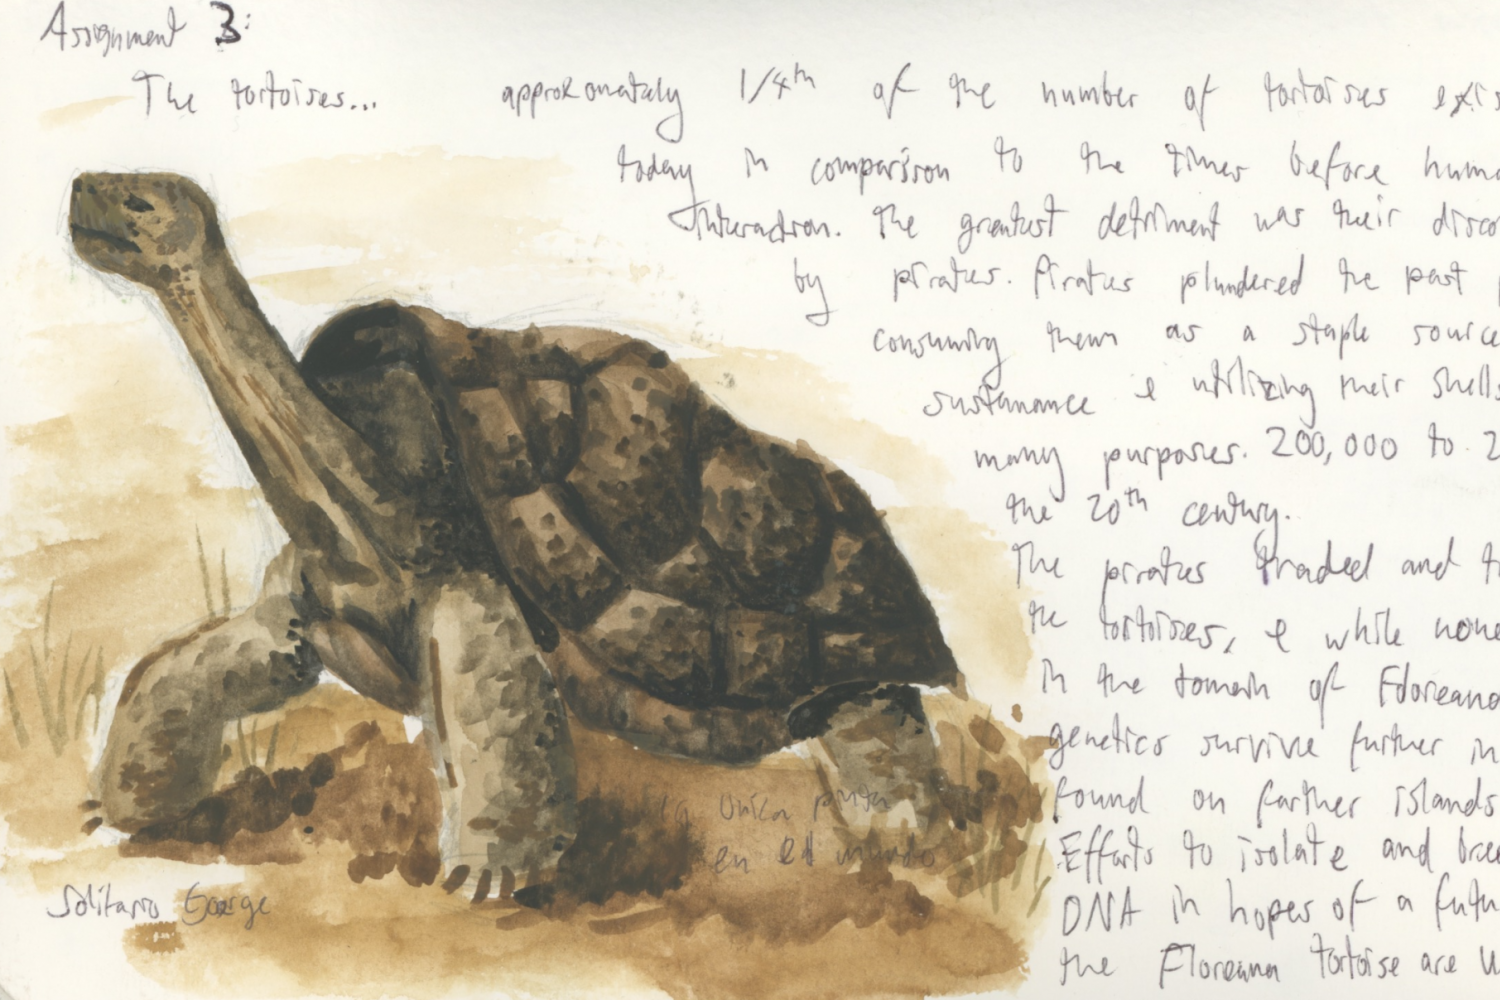 Assignment 3:
The tortoises... approxomately 1/4th of the number of tortoises exis
today in comparison to the times before huma
interaction. The greatest detriment was their disco
by pirates. Pirates plundered the past p
consuming them as a staple source
sustanance & utilizing their shells
many purposes. 200,000 to 2
the 20th century.
The pirates traded and t
the tortoises, & while none
in the domain of Floreana
genetics survive further in
found on farther islands
Efforts to isolate and bree
DNA in hopes of a futu
the Floreana tortoise are u
la unica pinta
en el mundo
Solitario George